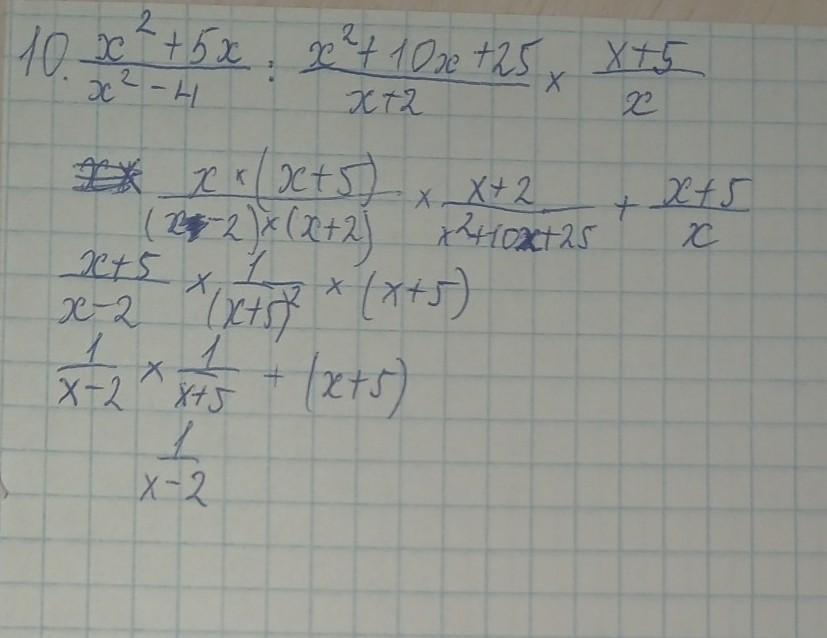 10. (x² + 5x)/(x² - 4) : (x² + 10x + 25)/(x+2) × (x+5)/x
(x × (x+5))/((x-2)×(x+2)) × (x+2)/(x²+10x+25) + (x+5)/x
(x+5)/(x-2) × 1/(x+5)² × (x+5)
1/(x-2) × 1/(x+5) + (x+5)
1/(x-2)